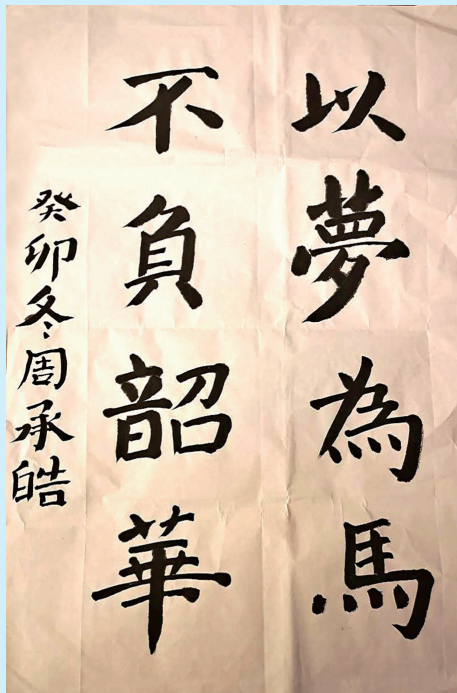 以夢為馬
不負韶華
癸卯冬周承皓